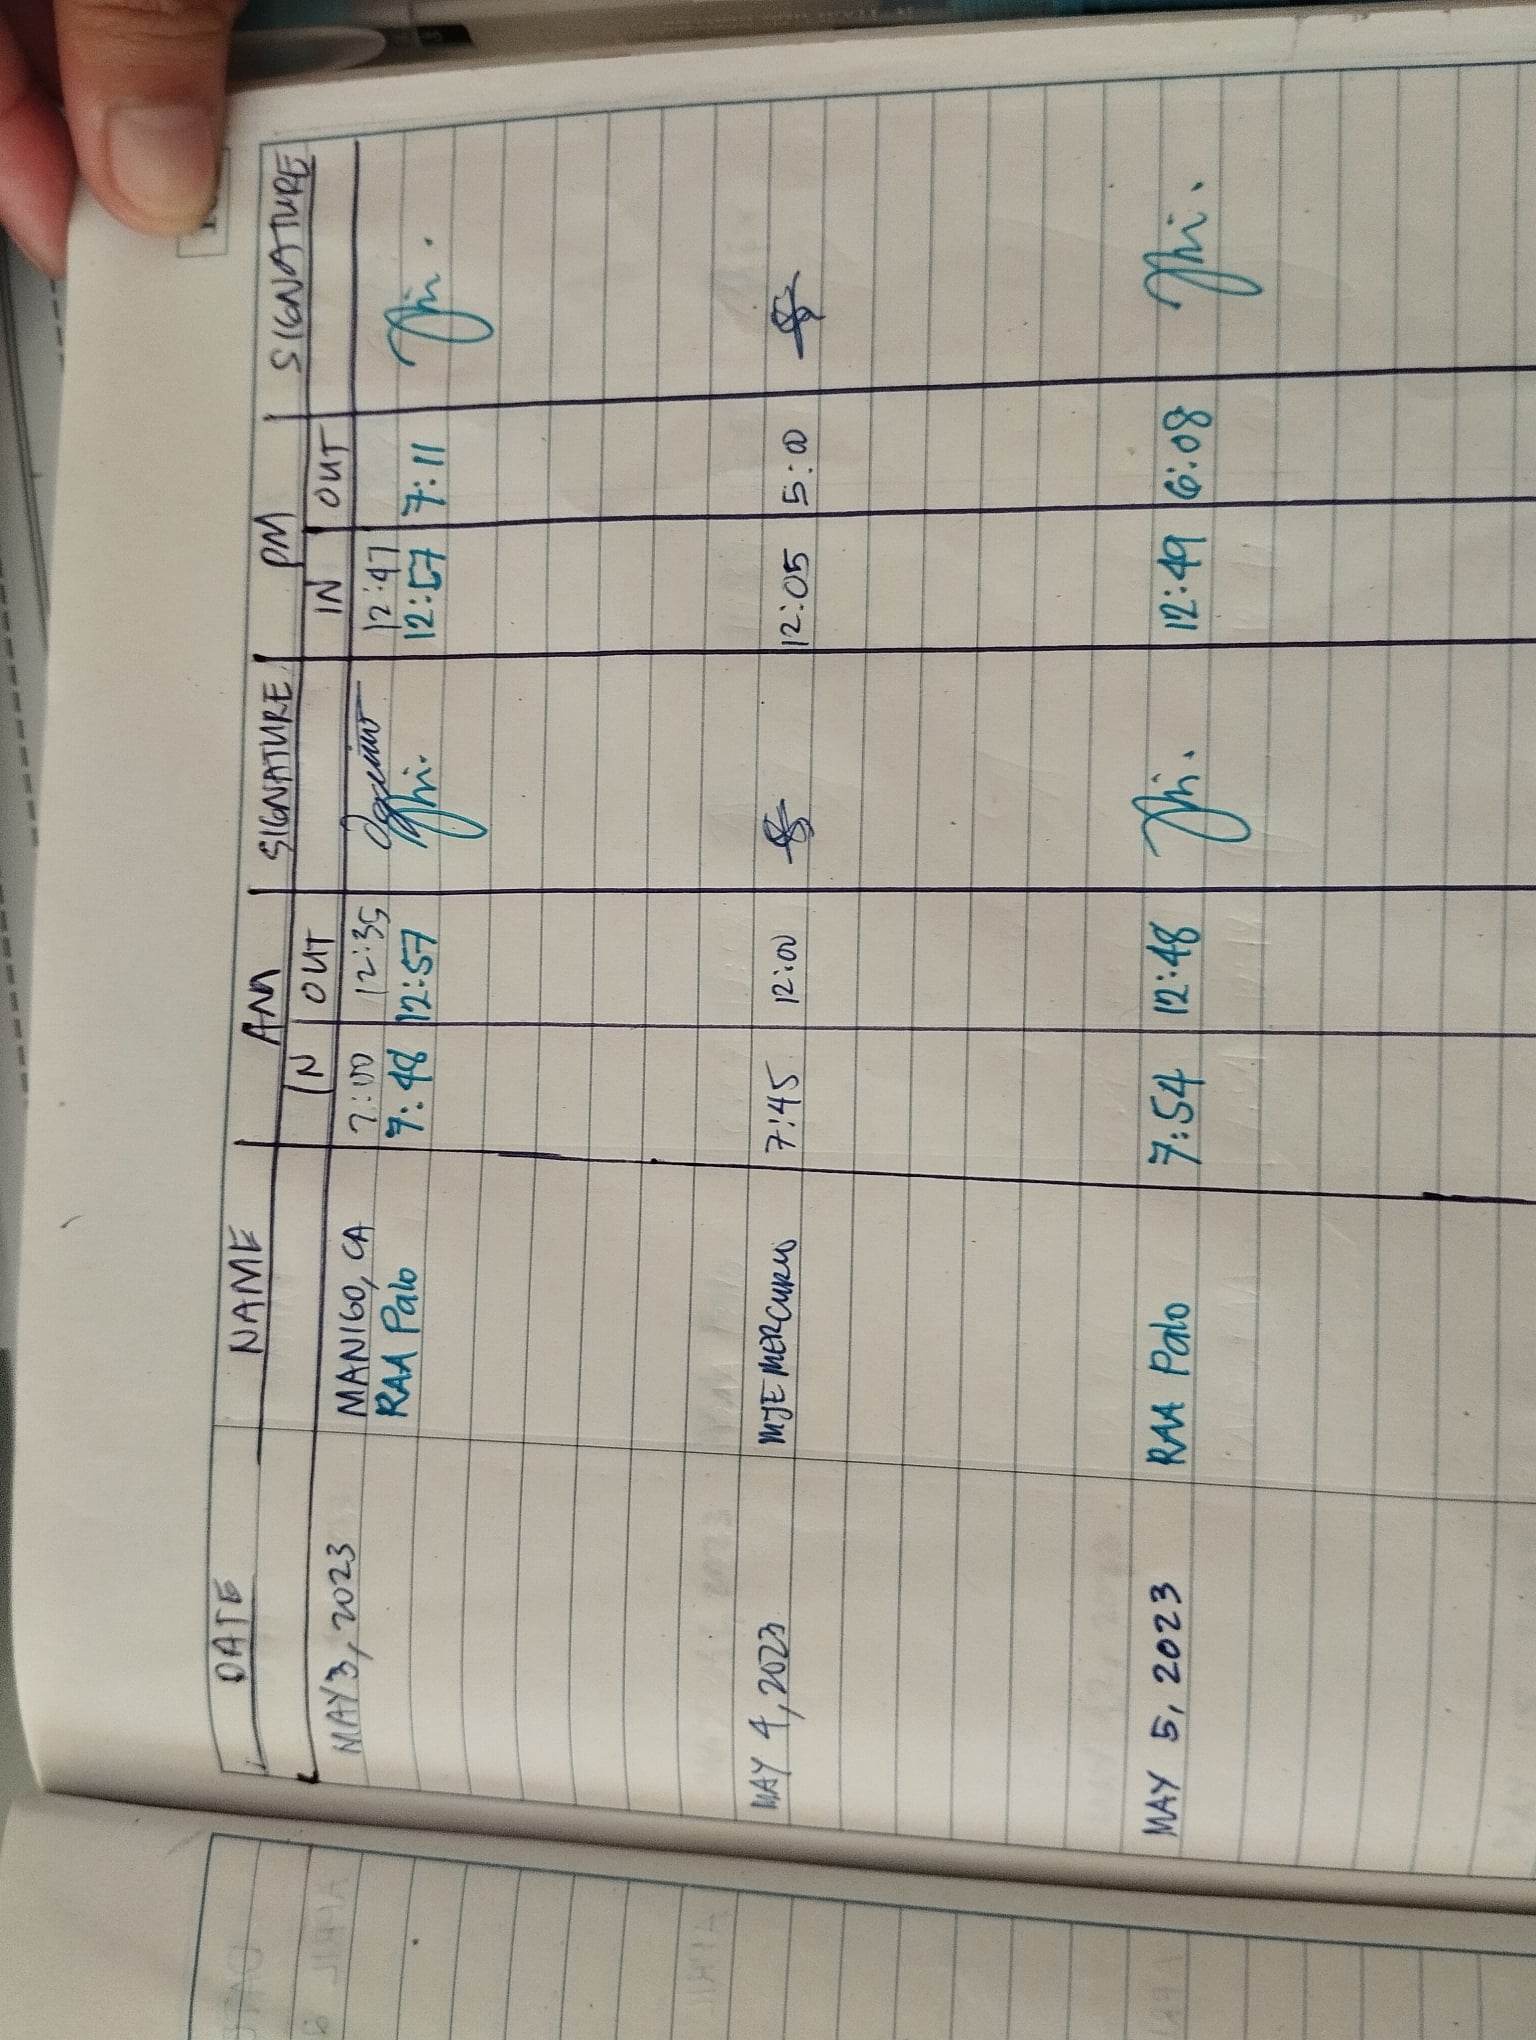 DATE NAME AM SIGNATURE PM SIGNATURE
IN OUT IN OUT
MAY 3, 2023 MANIGO, CA 7:00 12:35 12:47
RAA Palo 7:48 12:57 12:57 7:11
MAY 4, 2023 MJE MERCURIO 7:45 12:00 12:05 5:00
MAY 5, 2023 RAA Palo 7:54 12:48 12:49 6:08